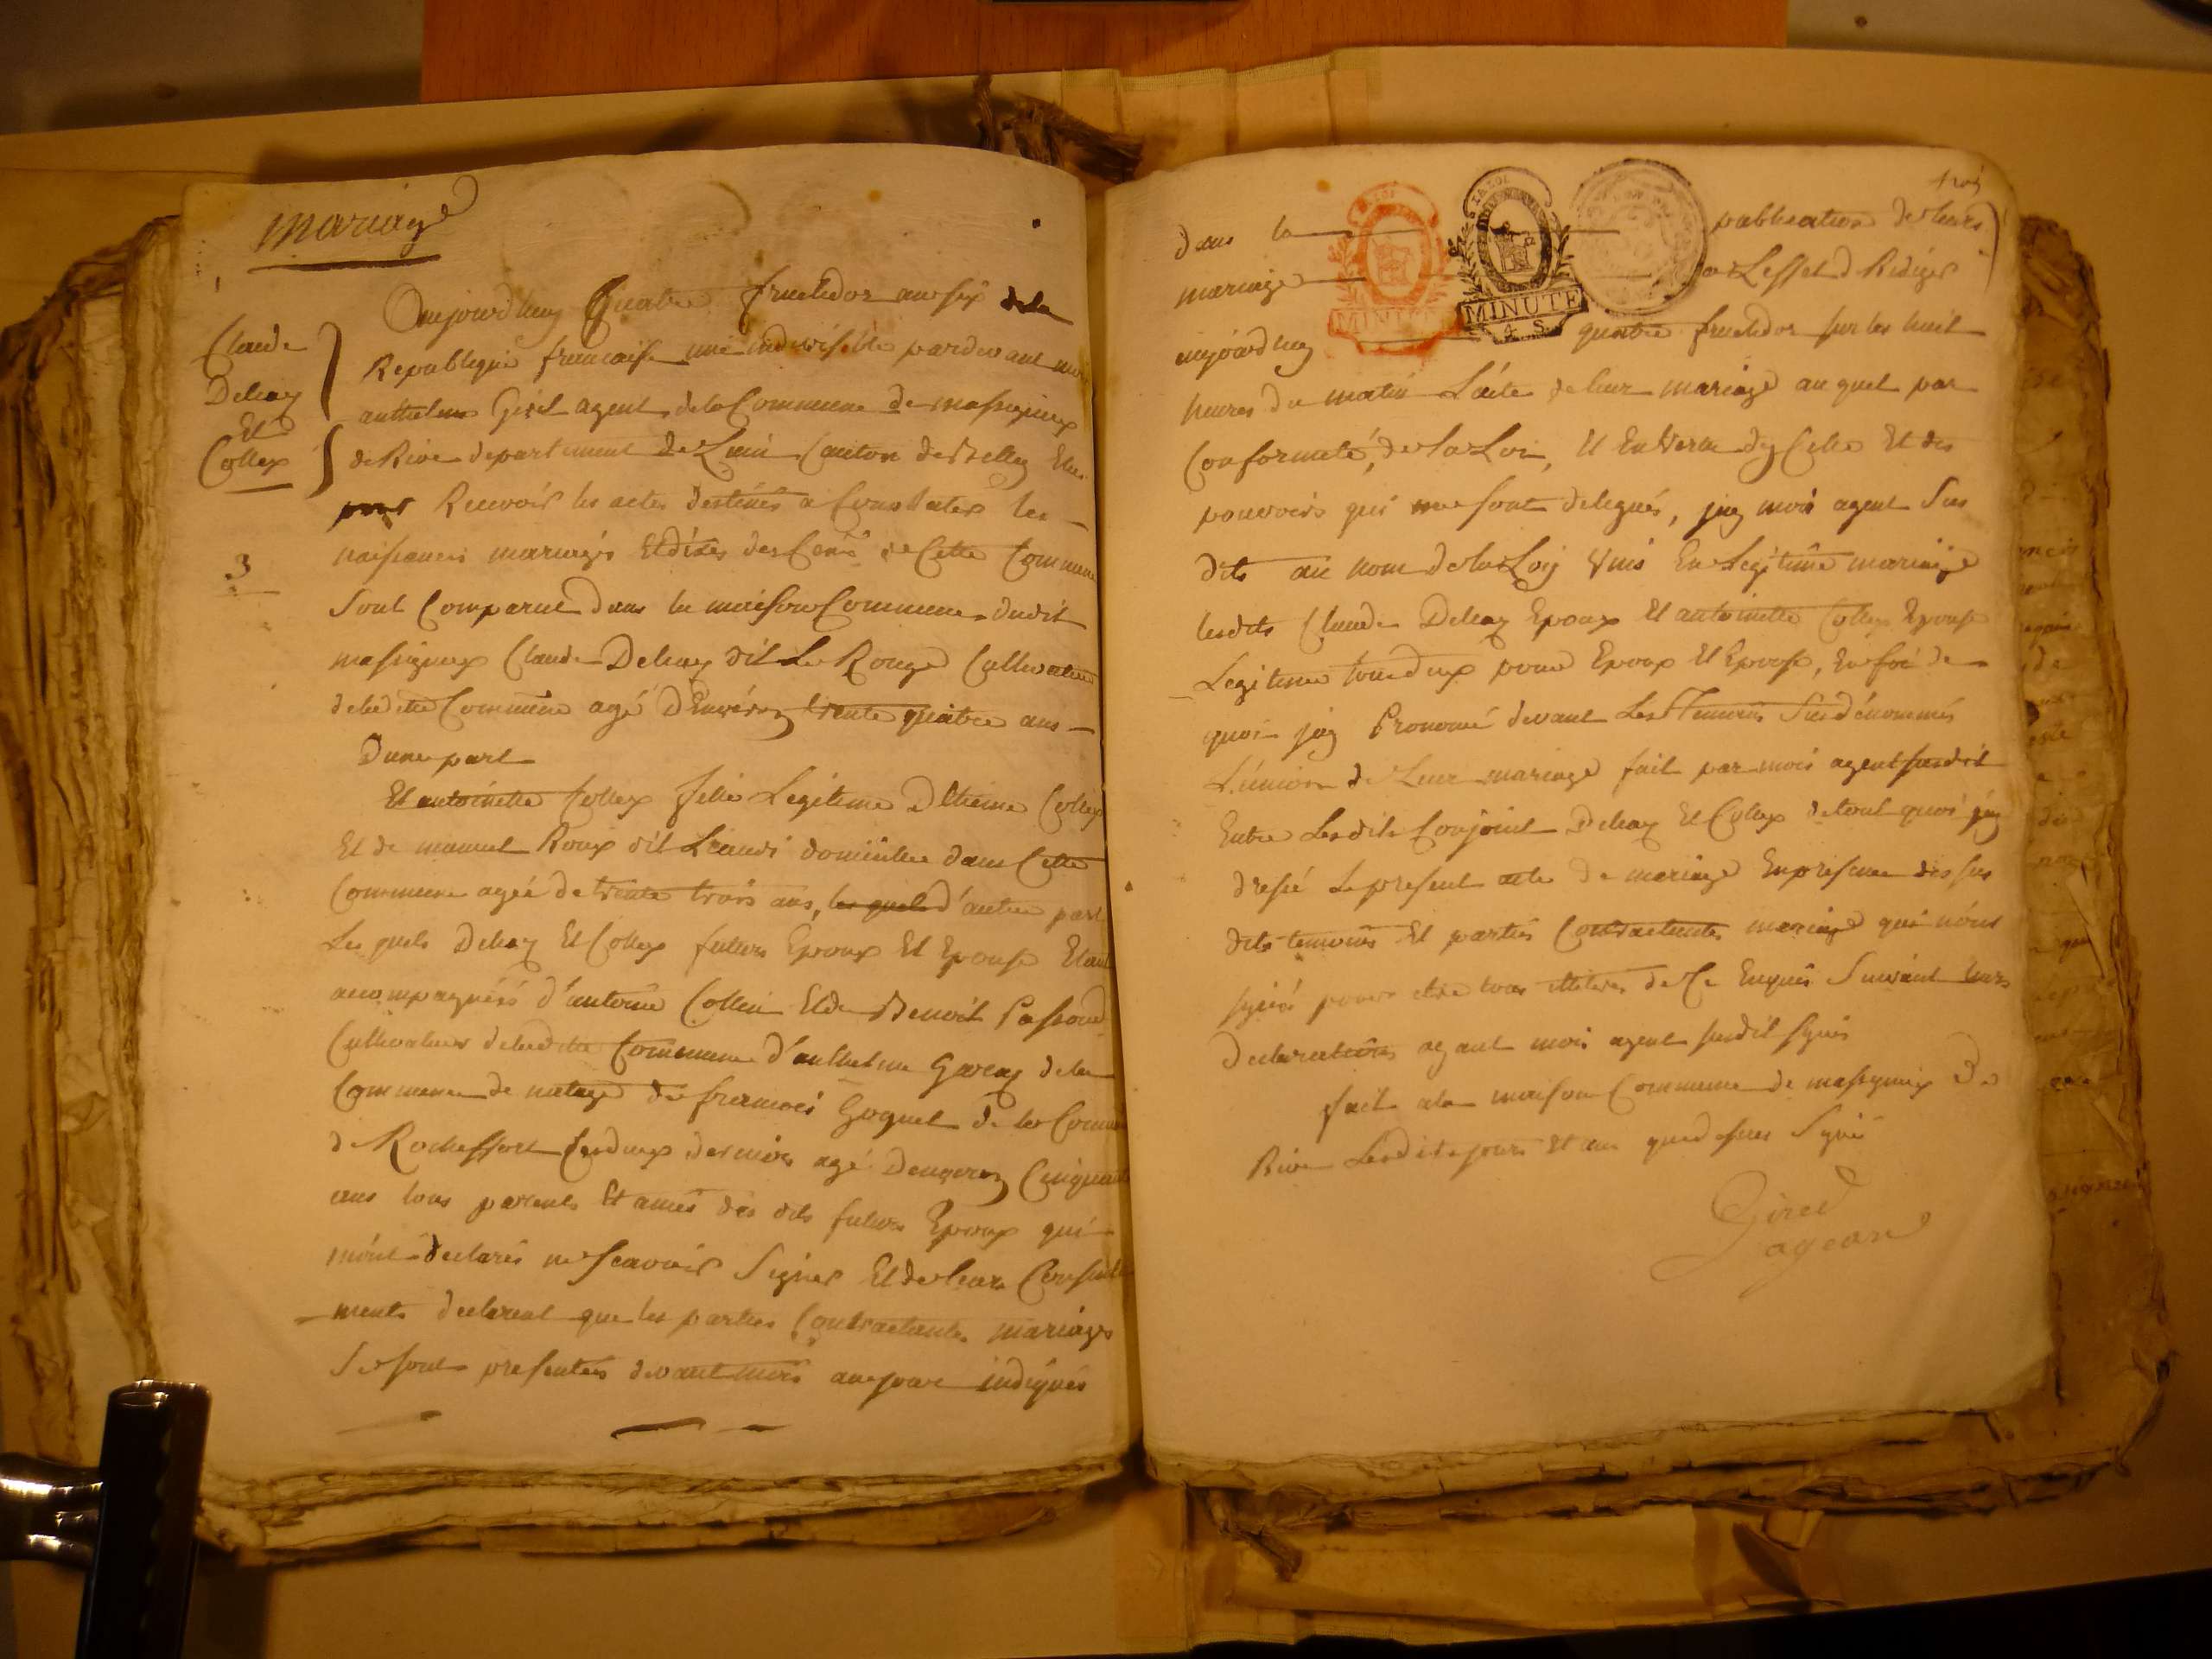 Mariage
Claude
Delay
Et
Collex
3
Aujourdhuy Quatre fructidor an six de la
Republique francaise une indivisible pardevant moi
anthelme Girel agent de la Commune de massigneux
de Rive departement de Lain Canton de Belley Elue
pour Recevoir les actes destinés a Constater les
naissances mariages Et décès des de Cette Commune
Sont Comparut dans la maison Commune dudit
massigneux Claude Delay dit Le Rouge Cultivateur
deladitte Commune agé D'Environ trente quatre ans
Dune part
Et antoinette Collex fille Legitime D'Etienne Collex
Et de Roux dit domiciliée dans Cette
Commune agée de trente trois ans, les quels d'autre part
Les quels Delay Et Collex futurs Epoux Et Epouse Etant
accompagnéés d'antoine Collin Et de Benoit Passoud
Cultivateurs deladitte Commune d'anthelme de la
Commune de de francois Goguet de la Commune
de Rocheffort Les deux dernier agé Denviron Cinquante
ans tous parents Et amis des dits futurs Epoux qui
m'ont declarés ne scavoir Signer Et de leurs Consente
ments declarent que les parties Contractantes mariage
Se sont presentées devant moi au jour indiqués
trois
dans la publication de leurs
mariage a Leffet d Rediger
aujourdhuy quatre fructidor sur les huit
heures du matin L'acte de leur mariage au quel par
Conformité, de la Loi, Et En Vertu dy Celle Et des
pouvoirs qui me sont delegués, jay moi agent Sus
dits au nom de la Loy Unis En Legitime mariage
lesdits Claude Delay Epoux Et antoinette Collex Epouse
Legitime tou deux pour Epoux Et Epouse, En foi de
quoi jay Prononcé devant Les Temoins Susdénommés
L'union de Leur mariage fait par moi agent susdit
Entre Lesdits Conjoint Delay Et Collex de tout quoi jay
dressé Le present acte de mariage En presence des sus
dits temoins Et parties Contractantes mariage qui n'ont
signés pour etre de Ce Enquis Suivant leurs
declarations ayant moi agent susdit signés
fait a la maison Commune de massigneux De
Rive Lesdits jours Et an que dessus Signé
Girel
agean
LA LOI
MINUTE
MINUTE
4. S.